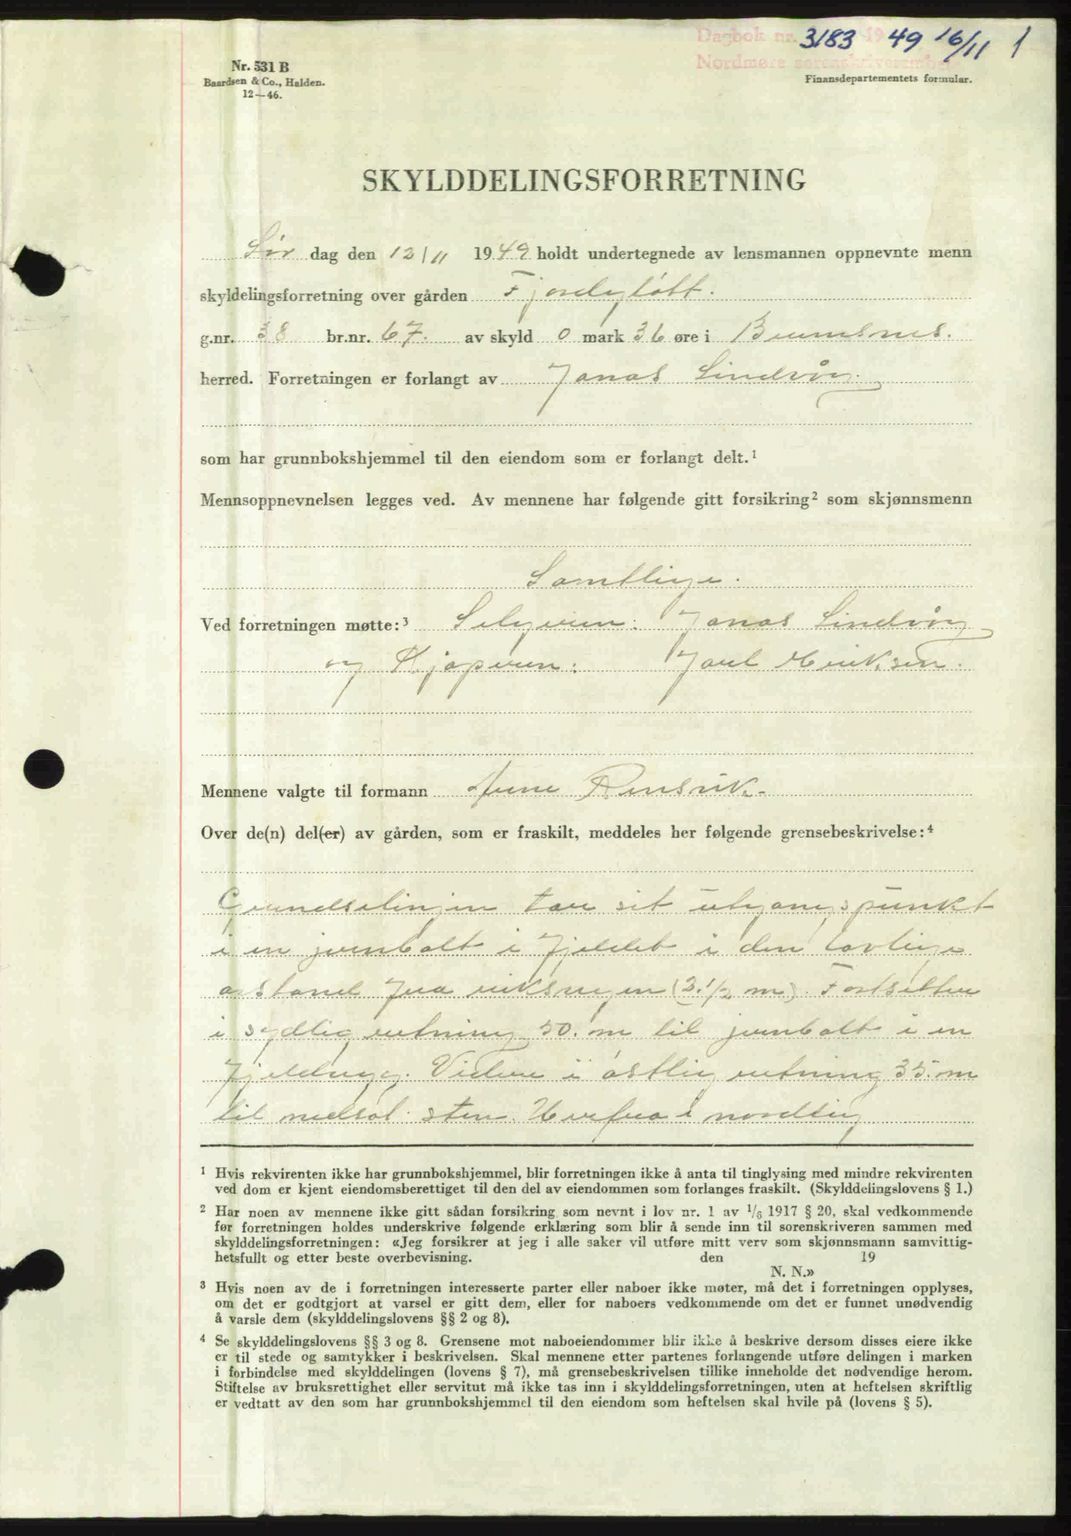 Dagbok nr. 3183 19 49 16/11 1
Nordmøre sorenskriverembete
Nr. 531 B
Baardsen & Co., Halden.
12—46.
Finansdepartementets formular.
SKYLDDELINGSFORRETNING
Lør dag den 12/11 1949 holdt undertegnede av lensmannen oppnevnte menn
skyldelingsforretning over gården Fjordgløtt.
g.nr. 38 br.nr. 67. av skyld 0 mark 36 øre i Bremsnes.
herred. Forretningen er forlangt av Jonas Lindvåg.
som har grunnbokshjemmel til den eiendom som er forlangt delt.¹
Mennsoppnevnelsen legges ved. Av mennene har følgende gitt forsikring² som skjønnsmenn
Samtlige.
Ved forretningen møtte:³ Selgeren: Jonas Lindvåg
og Kjøperen: Jarl Meriksen.
Mennene valgte til formann Arne Rensvik.
Over de(n) del(er) av gården, som er fraskilt, meddeles her følgende grensebeskrivelse:⁴
Grendselinjen tar sit utgangspunkt
i en jernbolt i fjeldet i den lovlige
avstand fra riksveyen (2.1/2 m). Fortsetter
i sydlig retning 50. m til jernbolt i en
fjeldrygg. Videre i østlig retning 35. m
til nedsat sten. Herfra i nordlig
¹ Hvis rekvirenten ikke har grunnbokshjemmel, blir forretningen ikke å anta til tinglysing med mindre rekvirenten
ved dom er kjent eiendomsberettiget til den del av eiendommen som forlanges fraskilt. (Skylddelingslovens § 1.)
² Har noen av mennene ikke gitt sådan forsikring som nevnt i lov nr. 1 av ¹/₆ 1917 § 20, skal vedkommende
før forretningen holdes underskrive følgende erklæring som blir å sende inn til sorenskriveren sammen med
skylddelingsforretningen: «Jeg forsikrer at jeg i alle saker vil utføre mitt verv som skjønnsmann samvittig-
hetsfullt og etter beste overbevisning. den 19
N. N.»
³ Hvis noen av de i forretningen interesserte parter eller naboer ikke møter, må det i forretningen opplyses,
om det er godtgjort at varsel er gitt dem, eller for naboers vedkommende om det er funnet unødvendig
å varsle dem (skylddelingslovens §§ 2 og 8).
⁴ Se skylddelingslovens §§ 3 og 8. Grensene mot naboeiendommer blir ikke å beskrive dersom disses eiere ikke
er til stede og samtykker i beskrivelsen. Skal mennene etter partenes forlangende utføre delingen i marken
i forbindelse med skylddelingen (lovens § 7), må grensebeskrivelsen tillike inneholde det nødvendige herom.
Stiftelse av bruksrettighet eller servitut må ikke tas inn i skylddelingsforretningen, uten at heftelsen skriftlig
er vedtatt av den som har grunnbokshjemmel til den eiendom som heftelsen skal hvile på (lovens § 5).